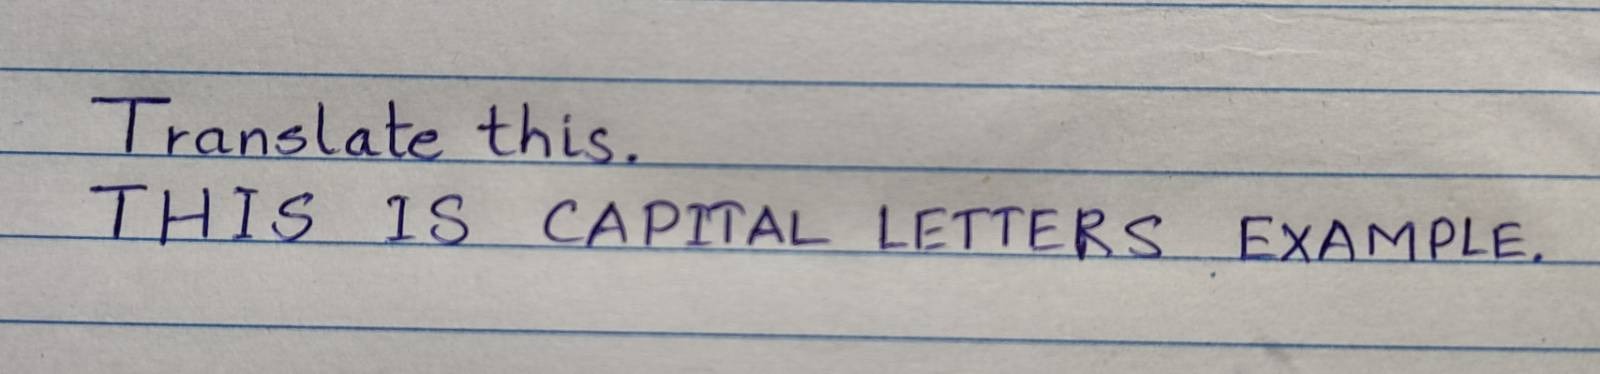 Translate this.
THIS IS CAPITAL LETTERS EXAMPLE.